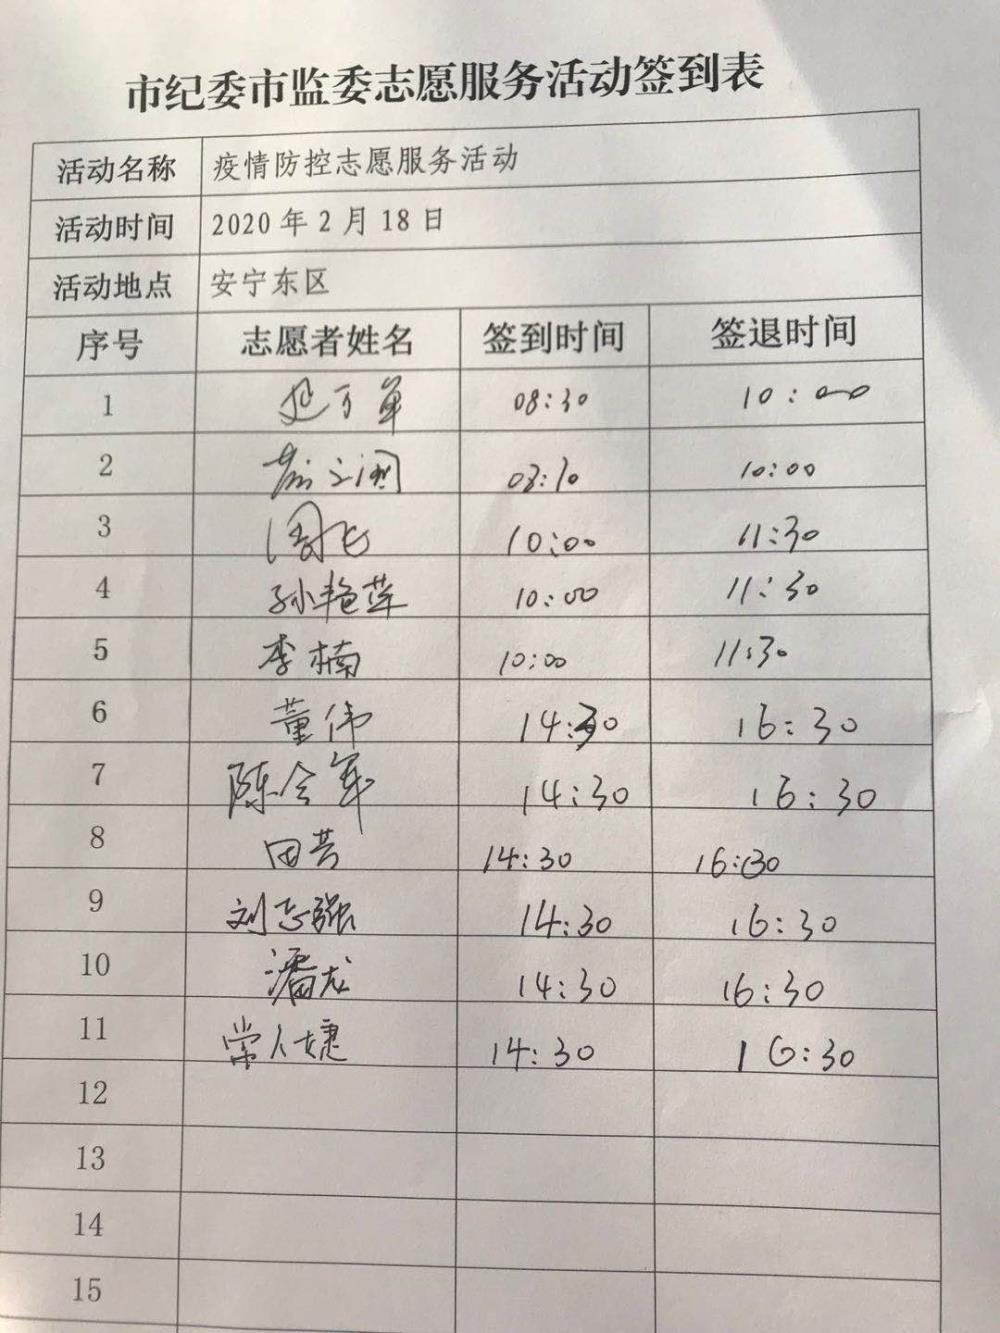 市纪委市监委志愿服务活动签到表
活动名称 疫情防控志愿服务活动
活动时间 2020 年 2 月 18 日
活动地点 安宁东区
序号 志愿者姓名 签到时间 签退时间
1 08:30 10:00
2 10:00
3 周飞 10:00 11:30
4 孙艳萍 10:00 11:30
5 李楠 10:00 11:30
6 董伟 14:30 16:30
7 陈会军 14:30 16:30
8 田芳 14:30 16:30
9 刘志强 14:30 16:30
10 潘龙 14:30 16:30
11 常人婕 14:30 16:30
12
13
14
15